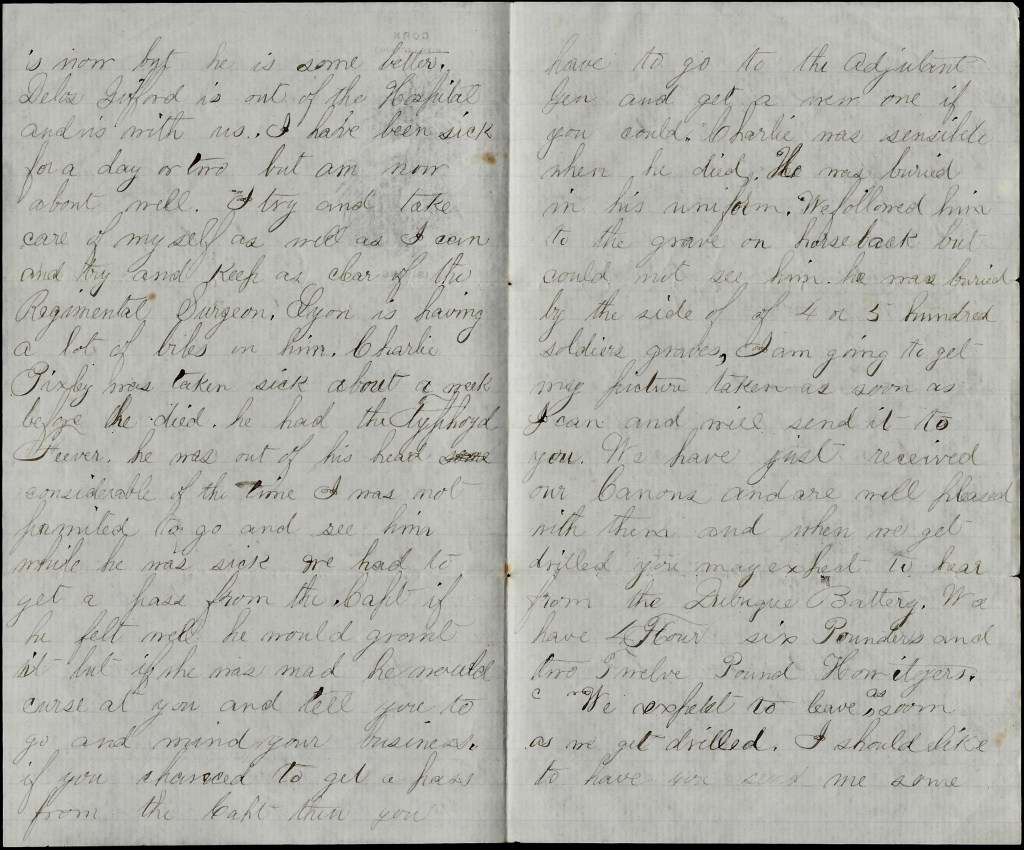 is now but he is some better.
Delos Gifford is out of the Hospital
and is with us. I have been sick
for a day or two but am now
about well. I try and take
care of myself as well as I can
and try and keep as clear of the
Regimental Surgeon. Lyon is having
a lot of biles on him. Charlie
Pixley was taken sick about a week
before he died. he had the Typhoyd
Feever. he was out of his head some
considerable of the time I was not
permited to go and see him
while he was sick we had to
get a pass from the Capt if
he felt well he would grant
it but if he was mad he would
curse at you and tell you to
go and mind your business.
if you chanced to get a pass
from the Capt then you
have to go to the Adjutant
Gen and get a new one if
you could. Charlie was sensible
when he died. He was buried
in his uniform. We followed him
to the grave on horseback but
could not see him. he was buried
by the side of of 4 or 5 hundred
soldiers graves, I am going to get
my picture taken as soon as
I can and will send it to
you. We have just received
our Canons and are well pleased
with them and when we get
drilled you may expect to hear
from the Dubuque Battery. We
have 4 Four six Pounders and
two Twelve Pound Howityers.
We expect to leave as soon
as we get drilled. I should like
to have you send me some